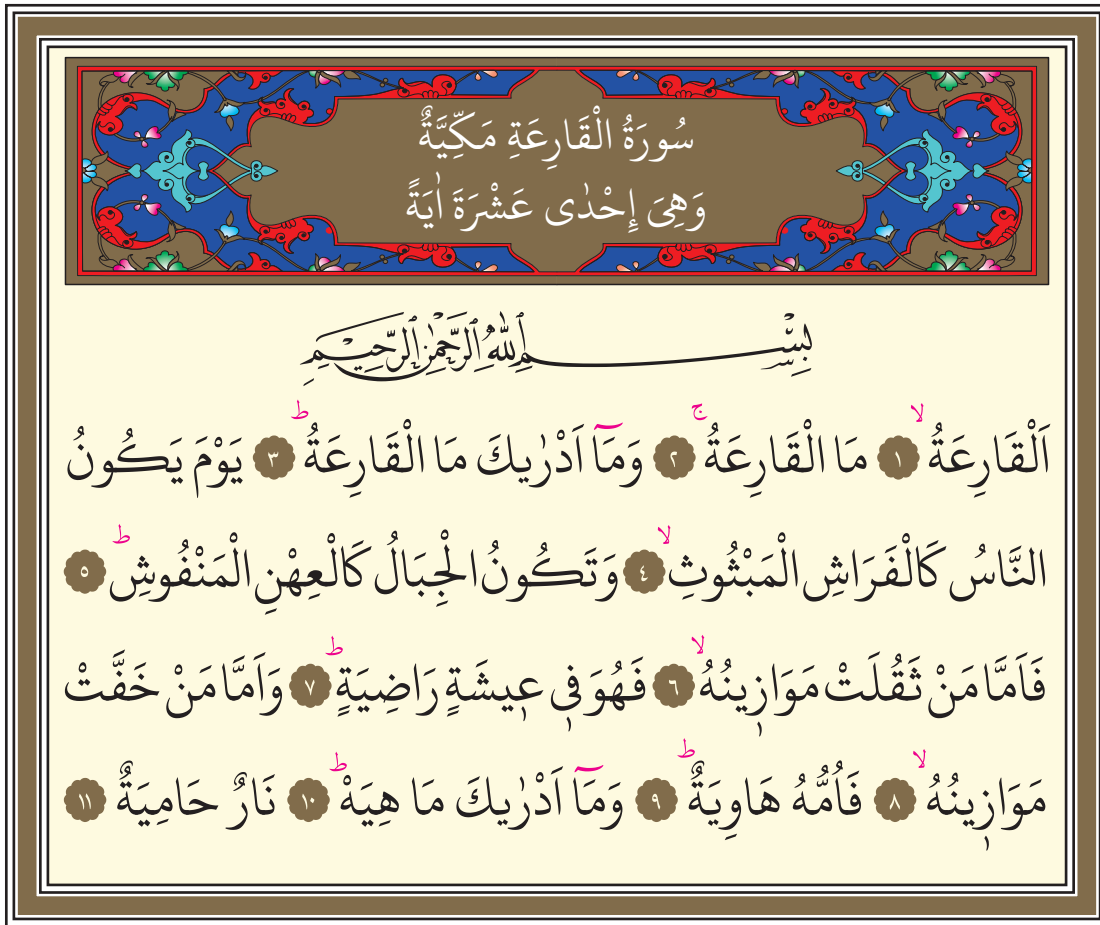 سُورَةُ الْقَارِعَةِ مَكِّيَّةٌ
وَهِىَ إِحْدٰى عَشْرَةَ اٰيَةً
بِسْمِ ٱللّٰهِ ٱلرَّحْمٰنِ ٱلرَّحِيمِ
اَلْقَارِعَةُۙ ١ مَا الْقَارِعَةُۚ ٢ وَمَٓا اَدْرٰيكَ مَا الْقَارِعَةُۜ ٣ يَوْمَ يَكُونُ
النَّاسُ كَالْفَرَاشِ الْمَبْثُوثِۙ ٤ وَتَكُونُ الْجِبَالُ كَالْعِهْنِ الْمَنْفُوشِۜ ٥
فَاَمَّا مَنْ ثَقُلَتْ مَوَاز۪ينُهُۙ ٦ فَهُوَ ف۪ى ع۪يشَةٍ رَاضِيَةٍۜ ٧ وَاَمَّا مَنْ خَفَّتْ
مَوَاز۪ينُهُۙ ٨ فَاُمُّهُ هَاوِيَةٌۜ ٩ وَمَٓا اَدْرٰيكَ مَا هِيَهْۜ ١٠ نَارٌ حَامِيَةٌ ١١